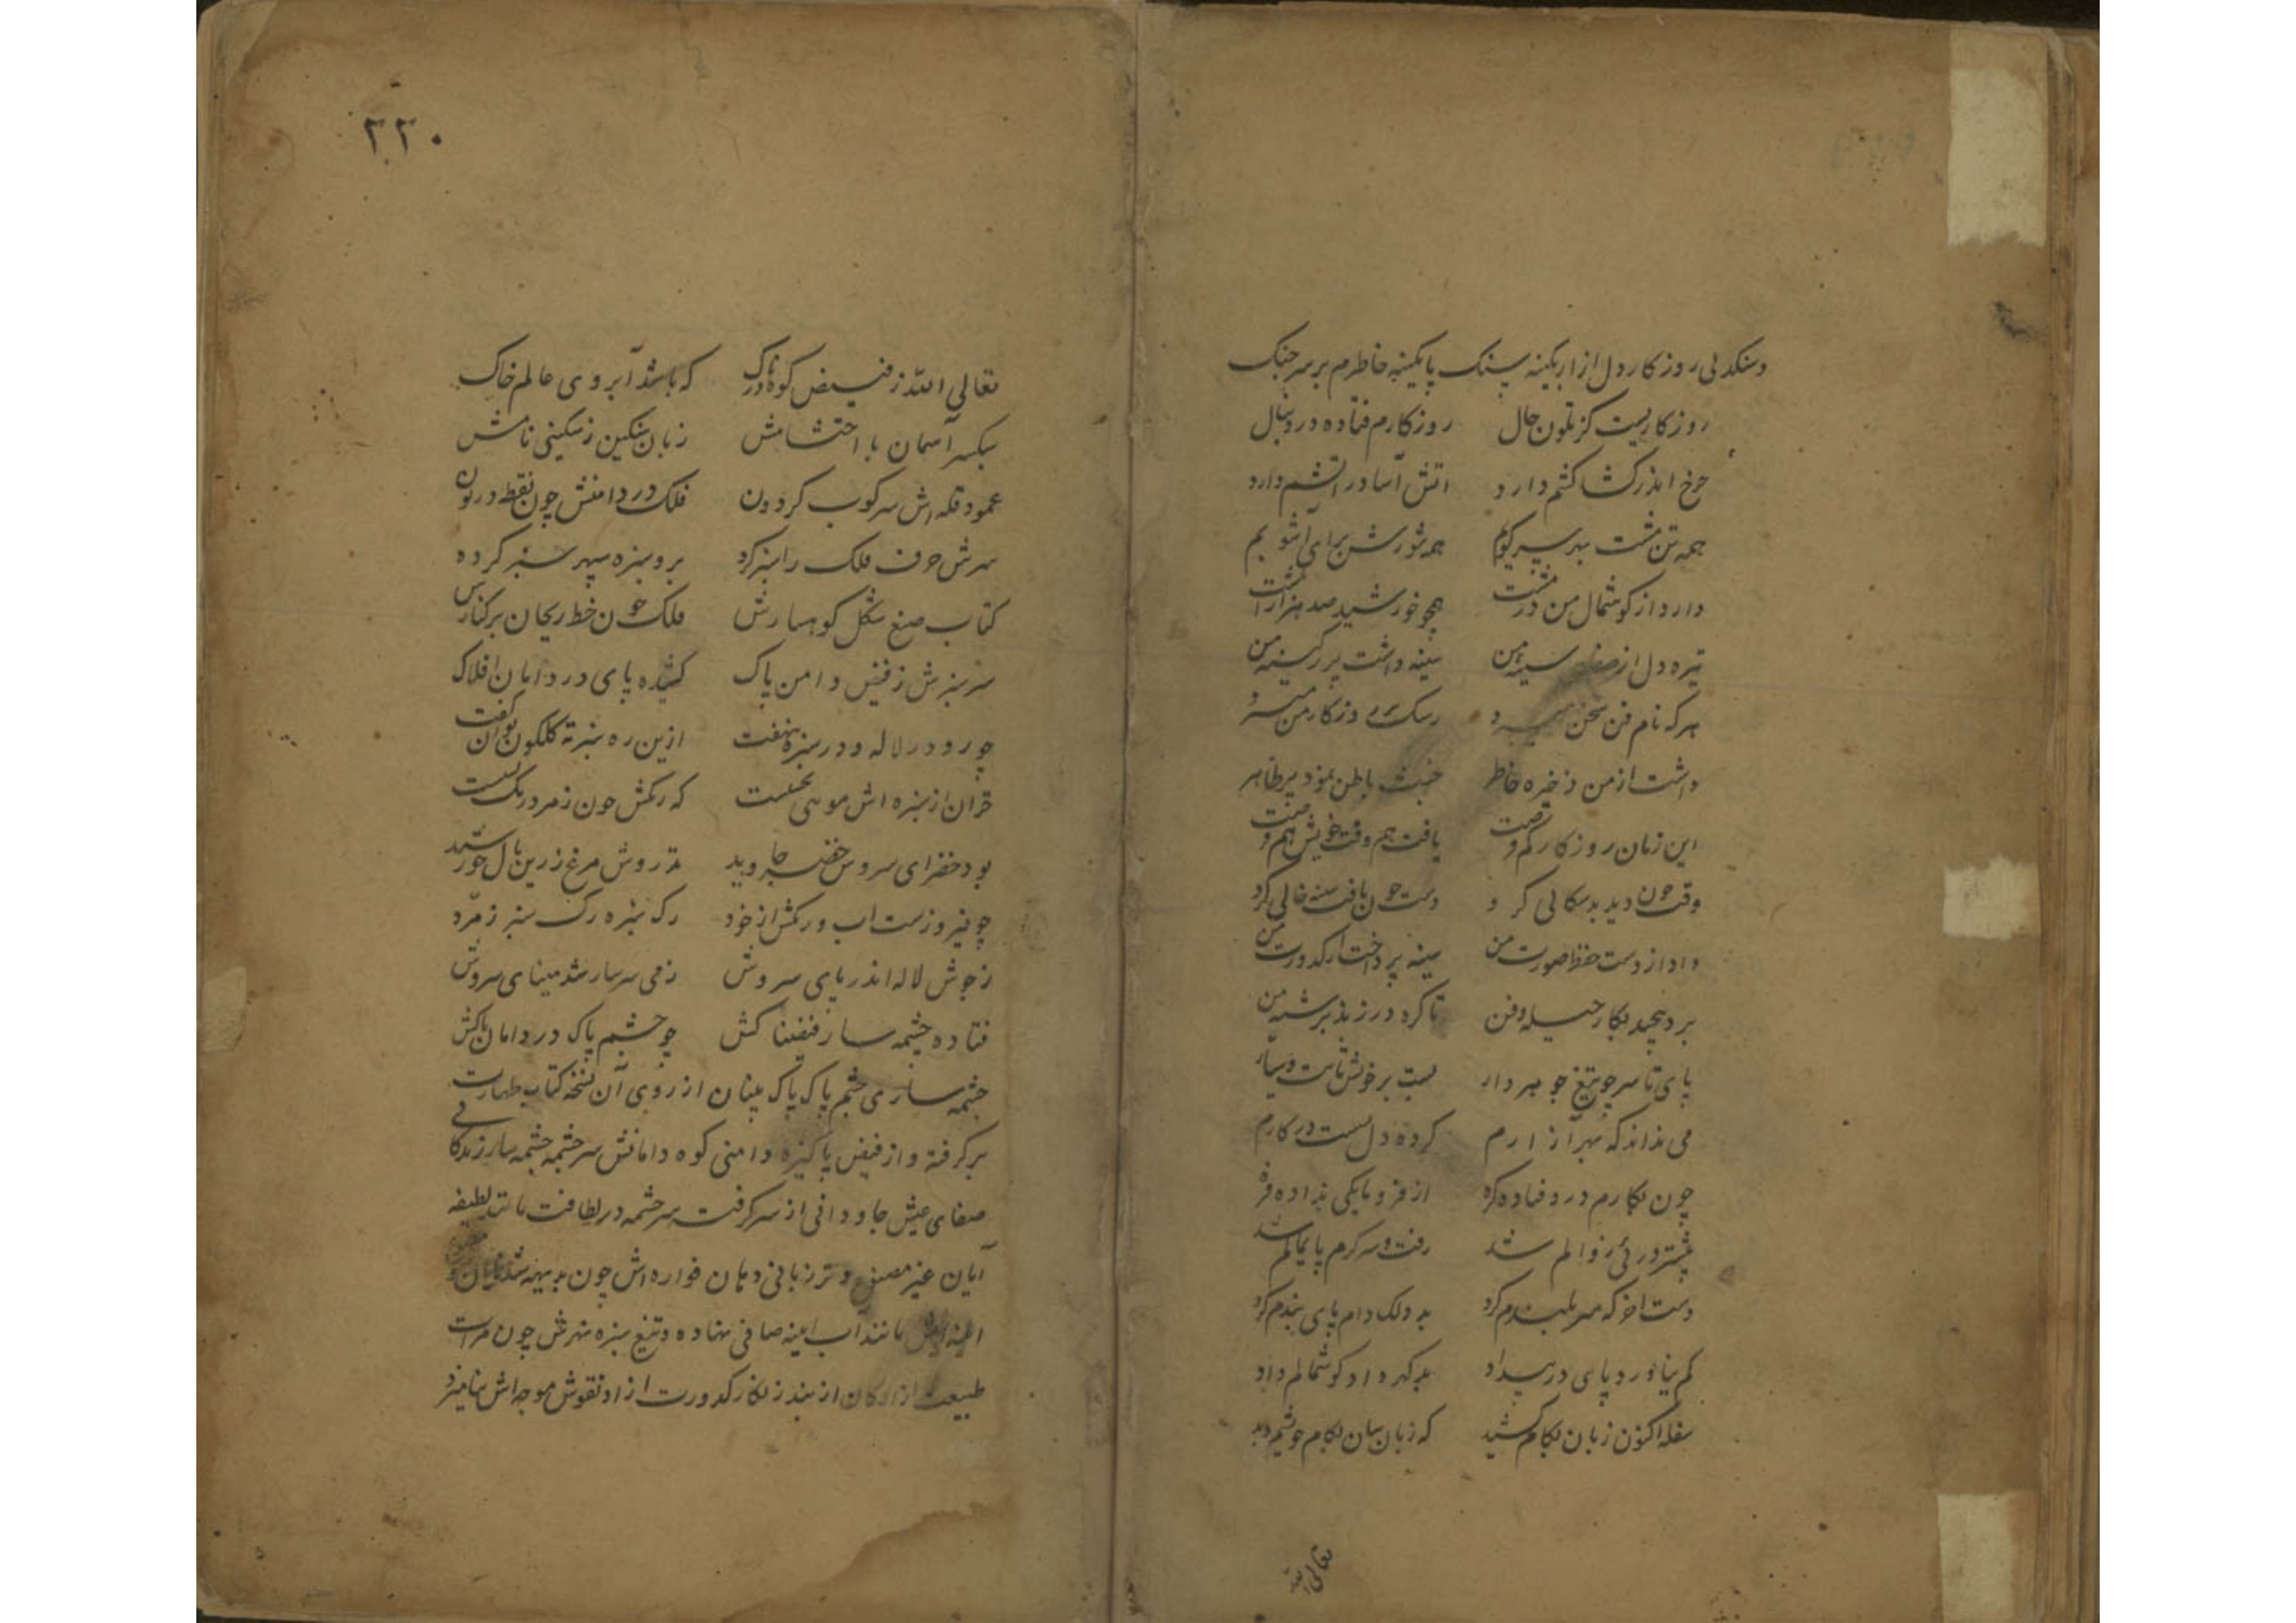 وسنکدلی روزکار دل ازار بکینه سنک پایکینه خاطرم بر سر جنک
روزکاریست کز تلون حال روزکارم فتاده در دنبال
چرخ اندر کشاکشم دارد اتش آسا در اتشم دارد
همه تن مشت بهر سرکوبم همه شورش برای آشوبم
دارد از کوشمال من در مشت همچو خورشید صد هزار انکشت
تیره دل از صفای سینه من سینه داشت پر ز کینه من
هرکه نام فن سخن میبرد رشک بر روزکار من
داشت از من ذخیره خاطر خبث باطن نمود بر ظاهر
این زمان روزکار کم فرصت یافت هم وقت خویش هم فرصت
وقت چون دید بدسکالی کرد دست چون یافت سینه خالی کرد
داد از دست حفظ صورت من سینه پرداخت از کدورت من
بر دپیچید بکار حیله و فن تا کره در زند بر شته من
پای تا سر چو تیغ جوهردار بست بر خونش ثابت و سیار
می نداند که بهر آزارم کرده دل بست در کارم
چون بکارم درو فتاده کره از فرومایکی نداده فره
پشتر در پی زوالم شد رفت و سرکرم پایمالم شد
دست اخر که سر بلندم کرد بدو لک دام پای بندم کرد
کم بیاورد پای در بیداد بد کهر داد کوشمالم داد
سفله اکنون زبان بکام کشید که زبان سان بکام خوشیم دید
تعالی الله
۲۲۰
تعالی الله ز فیض کوه ناک که باشد آبروی عالم خاک
سبکسر آسمان با احتشامش زبان سنکین ز سنکینی نامش
عمود قله اش سرکوب کردون فلک در دامنش چون نقطه در نون
سرش حرف فلک را سبز کرده بر و سبزه سپهر سبز کرده
کتاب صنع شکل کوهسارش فلک چون خط ریحان بر کنارش
سر سبزش ز فیض دامن پاک کشیده پای در دامان افلاک
چو رو در لاله و در سبزه بنهفت ازین ره سبزته کلکون توان کفت
قران از سبزه اش موسی نجست که رنکش چون زمرد رنک بست
بود خضرای سروش خضر جاوید تذروش مرغ زرین بال خورشید
چو فیروزست اب و رنکش از خود رک سبزه رک سبز زمرد
ز جوش لاله اندر پای سروش ز می سرسار شد مینای سروش
فتاده چشمه سار فیضناکش چو چشم پاک در دامان پاکش
چشمه ساری چشم پاک پاک بینان از روی آن نسخه کتاب طهارت
برکرفته و از فیض پاکیزه دامنی کوه دامانش سرچشمه چشمه سار زندکانی
صفای عیش جاودانی از سر کرفت سرچشمه در لطافت مانند لطیفه
آیان غیر مصنوع و تر زبانی دهان فواره اش چون بدیهه
مانند آب اینه صافی نهاده و تیغ سبزه نهرش چون مرات
طبیعت ازادکان از بند زنکار کدورت ازاد نقوش موجه اش بنامیزد